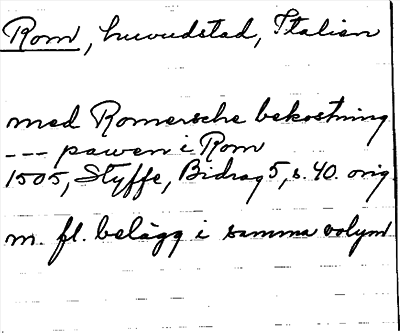 Rom, huvudstad, Italien
med Romersche bekostning
--- pawen i Rom
1505, Styffe, Bidrag 5, s. 40. orig.
m. fl. belägg i samma volym